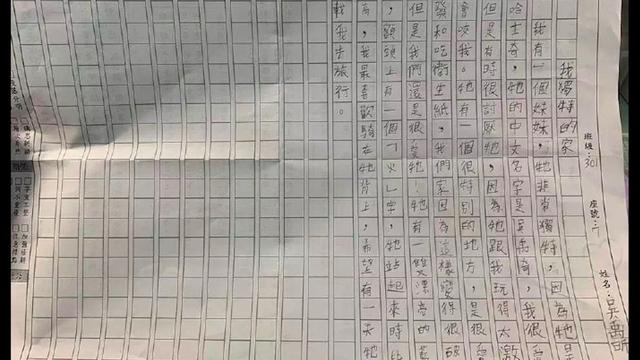 班級:301 座號:二 姓名:吳禹昕
我獨特的家
我有一個妹妹,牠非常獨特,因為牠是
哈士奇,牠的中文名字是吳禹奇,我很
但是有時很討厭牠,因為牠跟我玩得太激
會咬我。牠有一個很特別的地方,是很
發和吃衛生紙,我們家因為這樣變得很破
但是我們還是很愛牠!牠有一雙漂亮的藍
,額頭上有一個「火」字,牠站起來時比
高,我最喜歡騎在牠背上,希望有一天牠
載我去旅行。